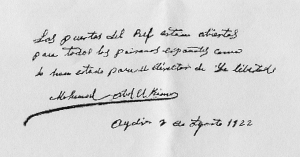 Las puertas del Rif estan abiertas
para todos los paisanos españoles como
lo han estado para el director de "La Libertad"
Mohamed Abd El Krim
Aydir 2 de Agosto 1922